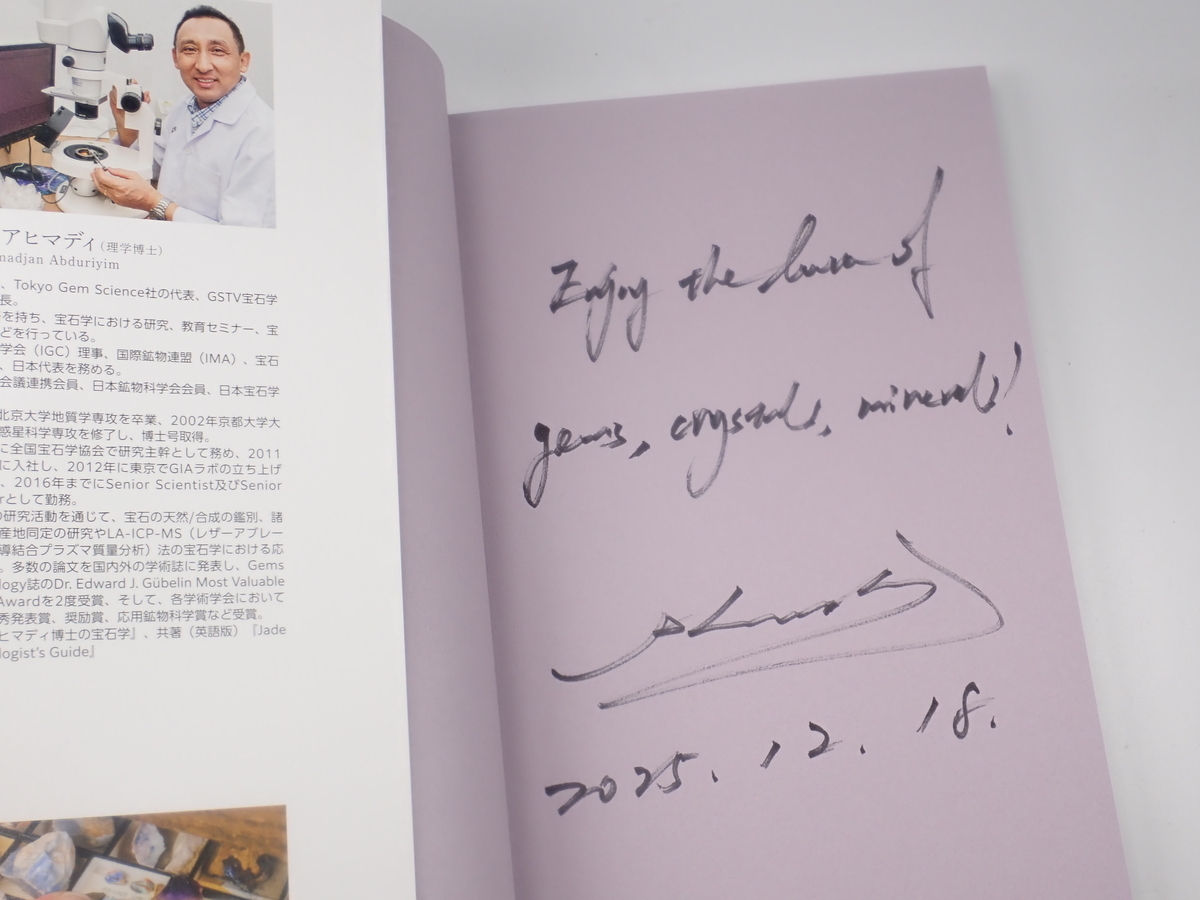 アヒマディ(理学博士)
madjan Abduriyim
、Tokyo Gem Science社の代表、GSTV宝石学
長。
を持ち、宝石学における研究、教育セミナー、宝
どを行っている。
学会（IGC）理事、国際鉱物連盟（IMA）、宝石
、日本代表を務める。
会議連携会員、日本鉱物科学会会員、日本宝石学
北京大学地質学専攻を卒業、2002年京都大学大
惑星科学専攻を修了し、博士号取得。
に全国宝石学協会で研究主幹として務め、2011
に入社し、2012年に東京でGIAラボの立ち上げ
、2016年までにSenior Scientist及びSenior
rとして勤務。
の研究活動を通じて、宝石の天然/合成の鑑別、諸
産地同定の研究やLA-ICP-MS（レザーアブレー
導結合プラズマ質量分析）法の宝石学における応
。多数の論文を国内外の学術誌に発表し、Gems
logy誌のDr. Edward J. Gübelin Most Valuable
Awardを2度受賞、そして、各学術学会において
秀発表賞、奨励賞、応用鉱物科学賞など受賞。
ヒマディ博士の宝石学』、共著（英語版）『Jade
logist's Guide』
Enjoy the of
gems, crystals, minerals!
2025.12.18.